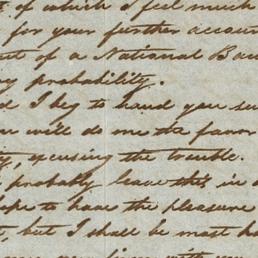 of which I feel much
for your further accoun
of a National Ba
probability.
I beg to hand you
will do me the favor
excusing the trouble.
probably leave this in
hope to have the pleasure
but I shall be most ha